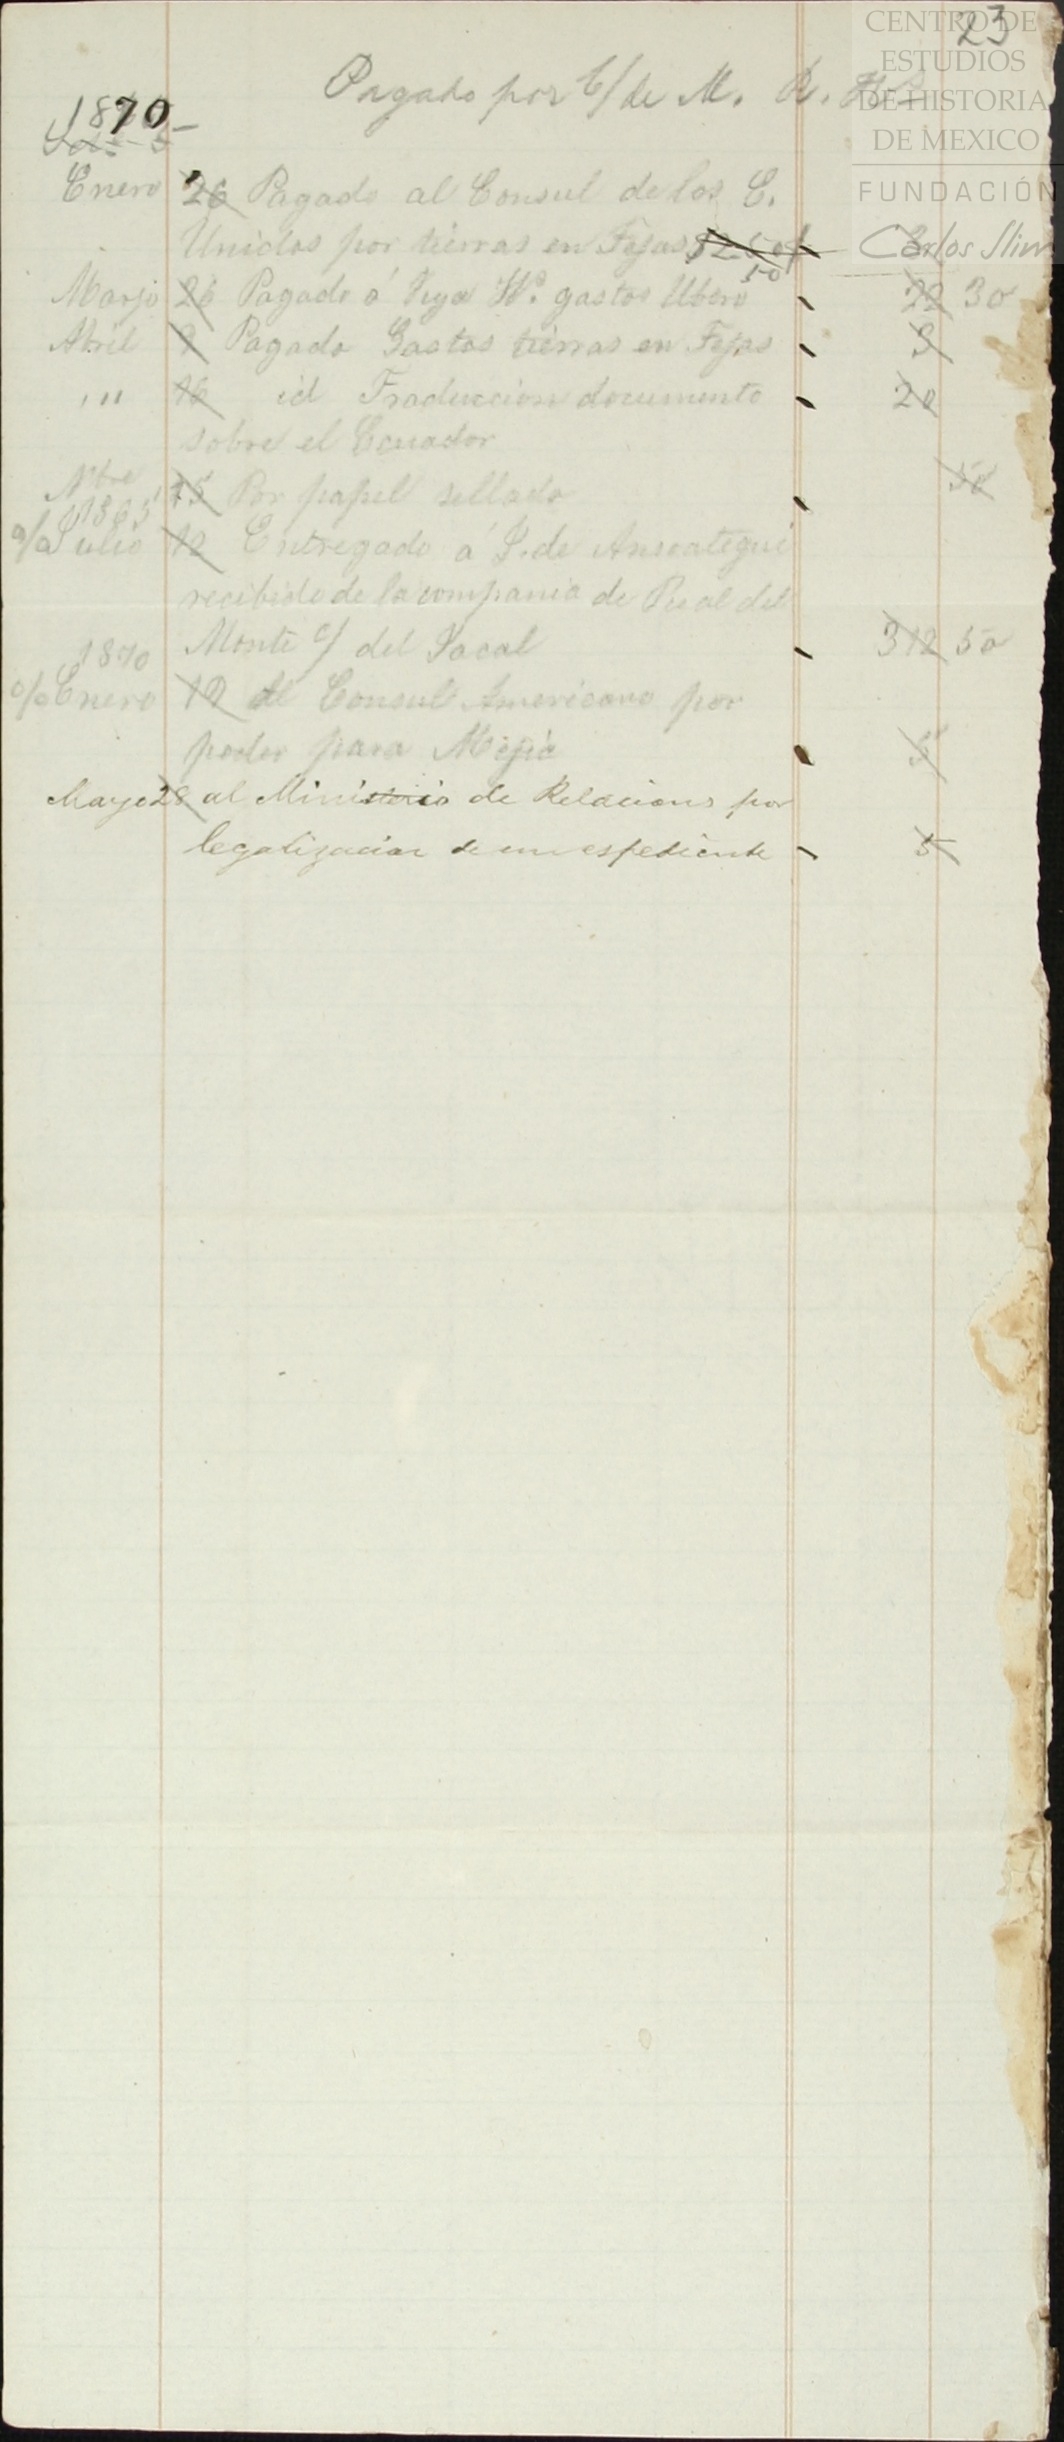 CENTRO DE
ESTUDIOS
DE HISTORIA
DE MEXICO
FUNDACIÓN
Carlos Slim
23
Pagado por C/ de M. R.
1870
Enero 26 Pagado al Consul de los E.
Unidos por tierras en Tejas $2.50
50
Marzo 26 Pagado á Vega Hº. gastos 22 30
Abril 9 Pagado Gastos tierras en Tejas 9
" 16 id Traduccion documento 20
sobre el Ecuador
Nbre 15 Por papel sellado 50
1865
Julio 12 Entregado á J. de Ansoategui
recibido de la compania de Real del
Monte c/ del Jacal 312 50
1870
Enero 19 al Consul Americano por
poder para Mejic 5
Mayo 28 al Ministerio de Relacions por
legalizacion de un espediente 5